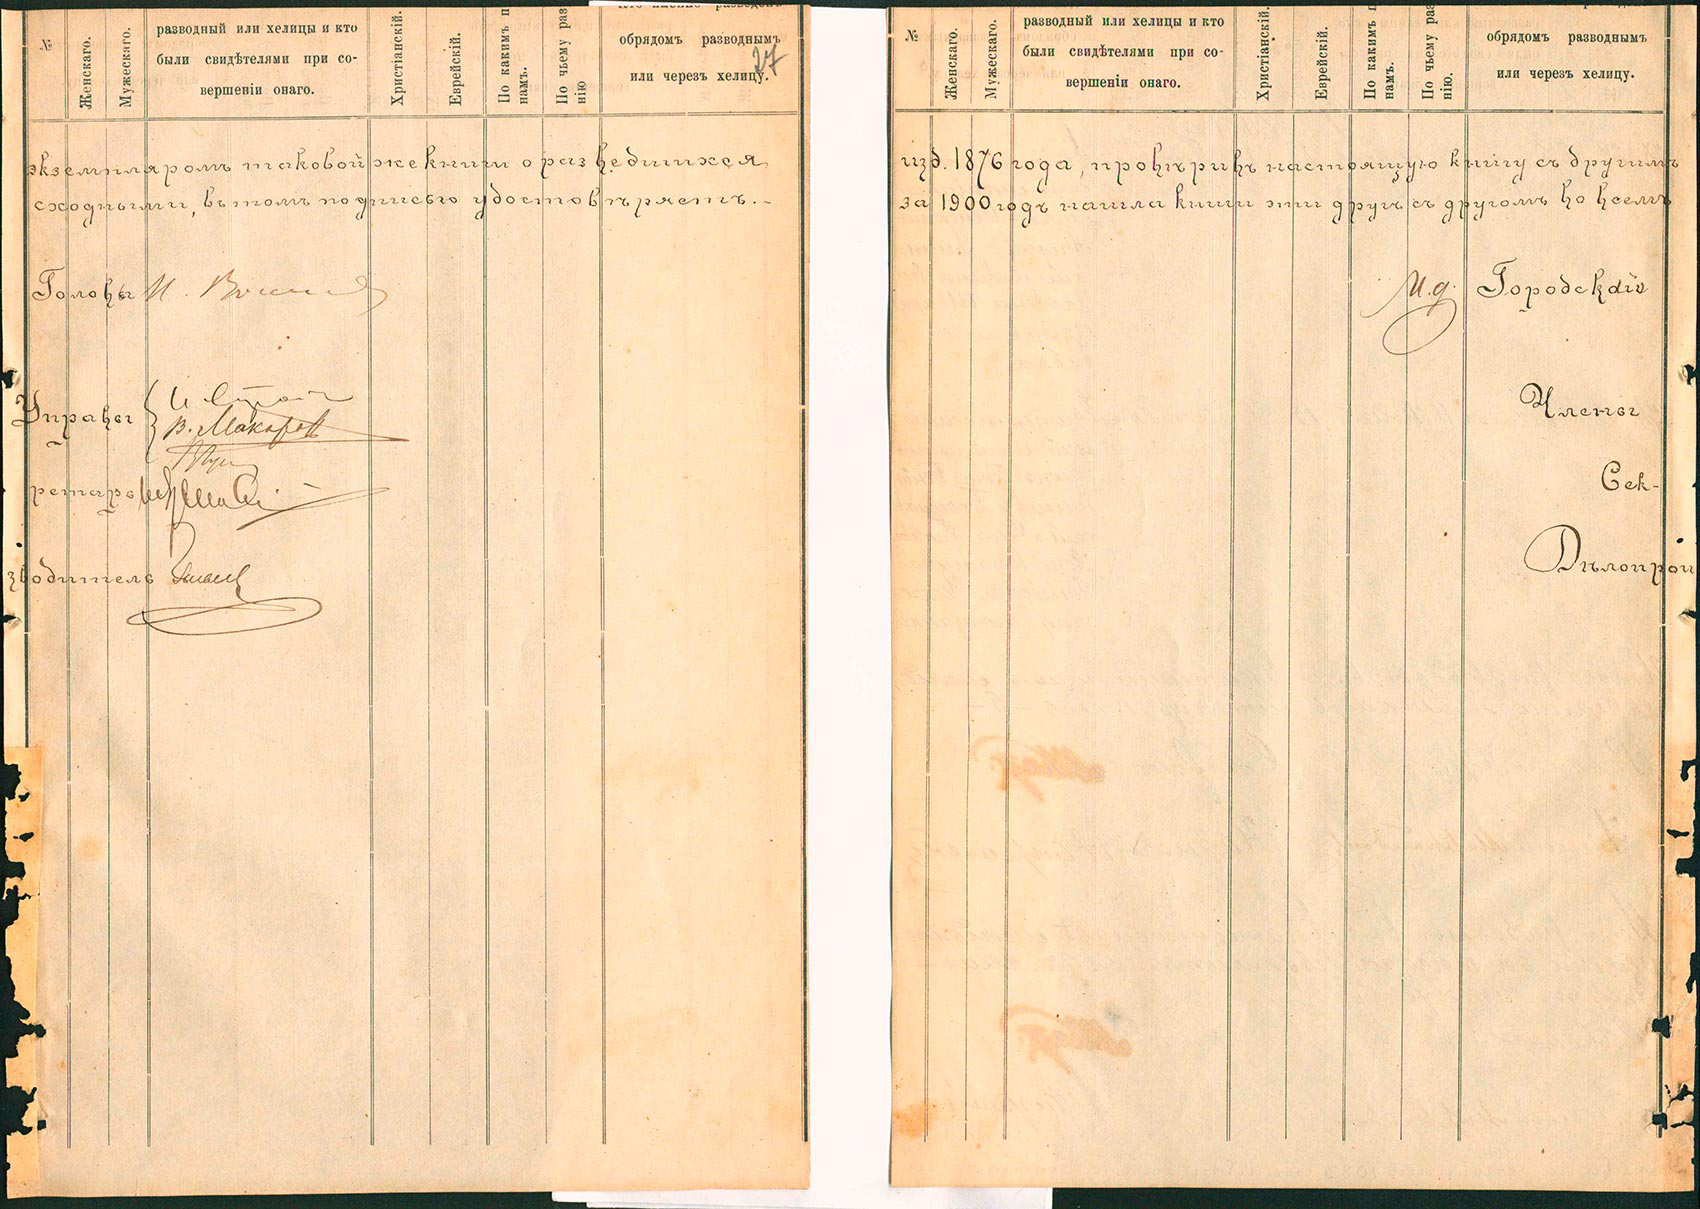 №
Женскаго.
Мужескаго.
разводный или хелицы и кто
были свидѣтелями при со-
вершеніи онаго.
Христіанскій.
Еврейскій.
По какимъ п
намъ.
По чьему раз
нію
обрядомъ разводнымъ
или черезъ хелицу.
27
экземпляромъ таковой же книги о разведшихся
сходными, въ томъ подписью удостовѣряетъ.-
Головы И.
Управы
В. Макаровъ
ретарь
зводитель
№
Женскаго.
Мужескаго.
разводный или хелицы и кто
были свидѣтелями при со-
вершеніи онаго.
Христіанскій.
Еврейскій.
По какимъ п
намъ.
По чьему раз
нію.
обрядомъ разводнымъ
или черезъ хелицу.
изд. 1876 года, провѣривъ настоящую книгу съ другимъ
за 1900 годъ нашла книги эти другъ съ другомъ во всемъ
И.д. Городской
Члены
Сек-
Дѣлопрои